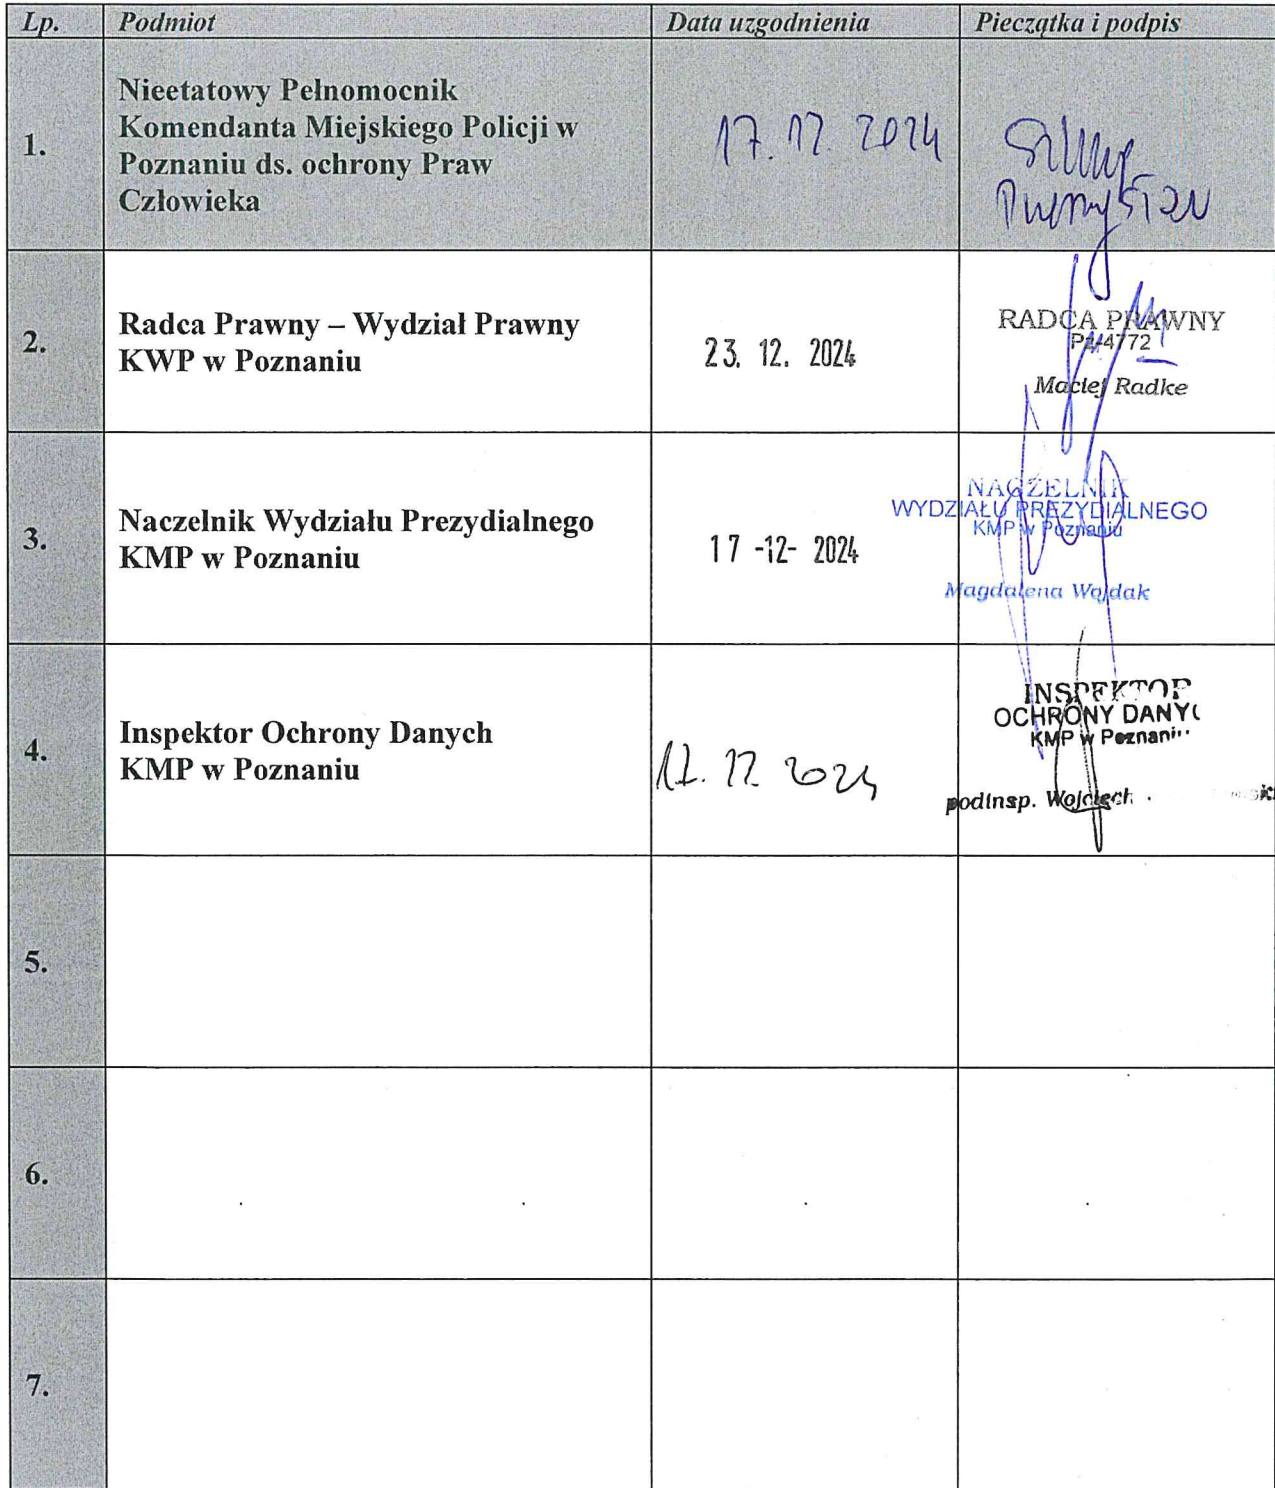 Lp. Podmiot Data uzgodnienia Pieczątka i podpis
1.
Nieetatowy Pełnomocnik
Komendanta Miejskiego Policji w
Poznaniu ds. ochrony Praw
Człowieka
17.12.2024
2.
Radca Prawny – Wydział Prawny
KWP w Poznaniu
23. 12. 2024
RADCA PRAWNY
Maciej Radke
3.
Naczelnik Wydziału Prezydialnego
KMP w Poznaniu
17 -12- 2024
NACZELNIK
WYDZIAŁU PREZYDIALNEGO
KMP w Poznaniu
Magdalena Wojdak
4.
Inspektor Ochrony Danych
KMP w Poznaniu
17.12.2024
INSPEKTOR
OCHRONY DANY
KMP w Poznaniu
podinsp. Wojciech
5.
6.
7.